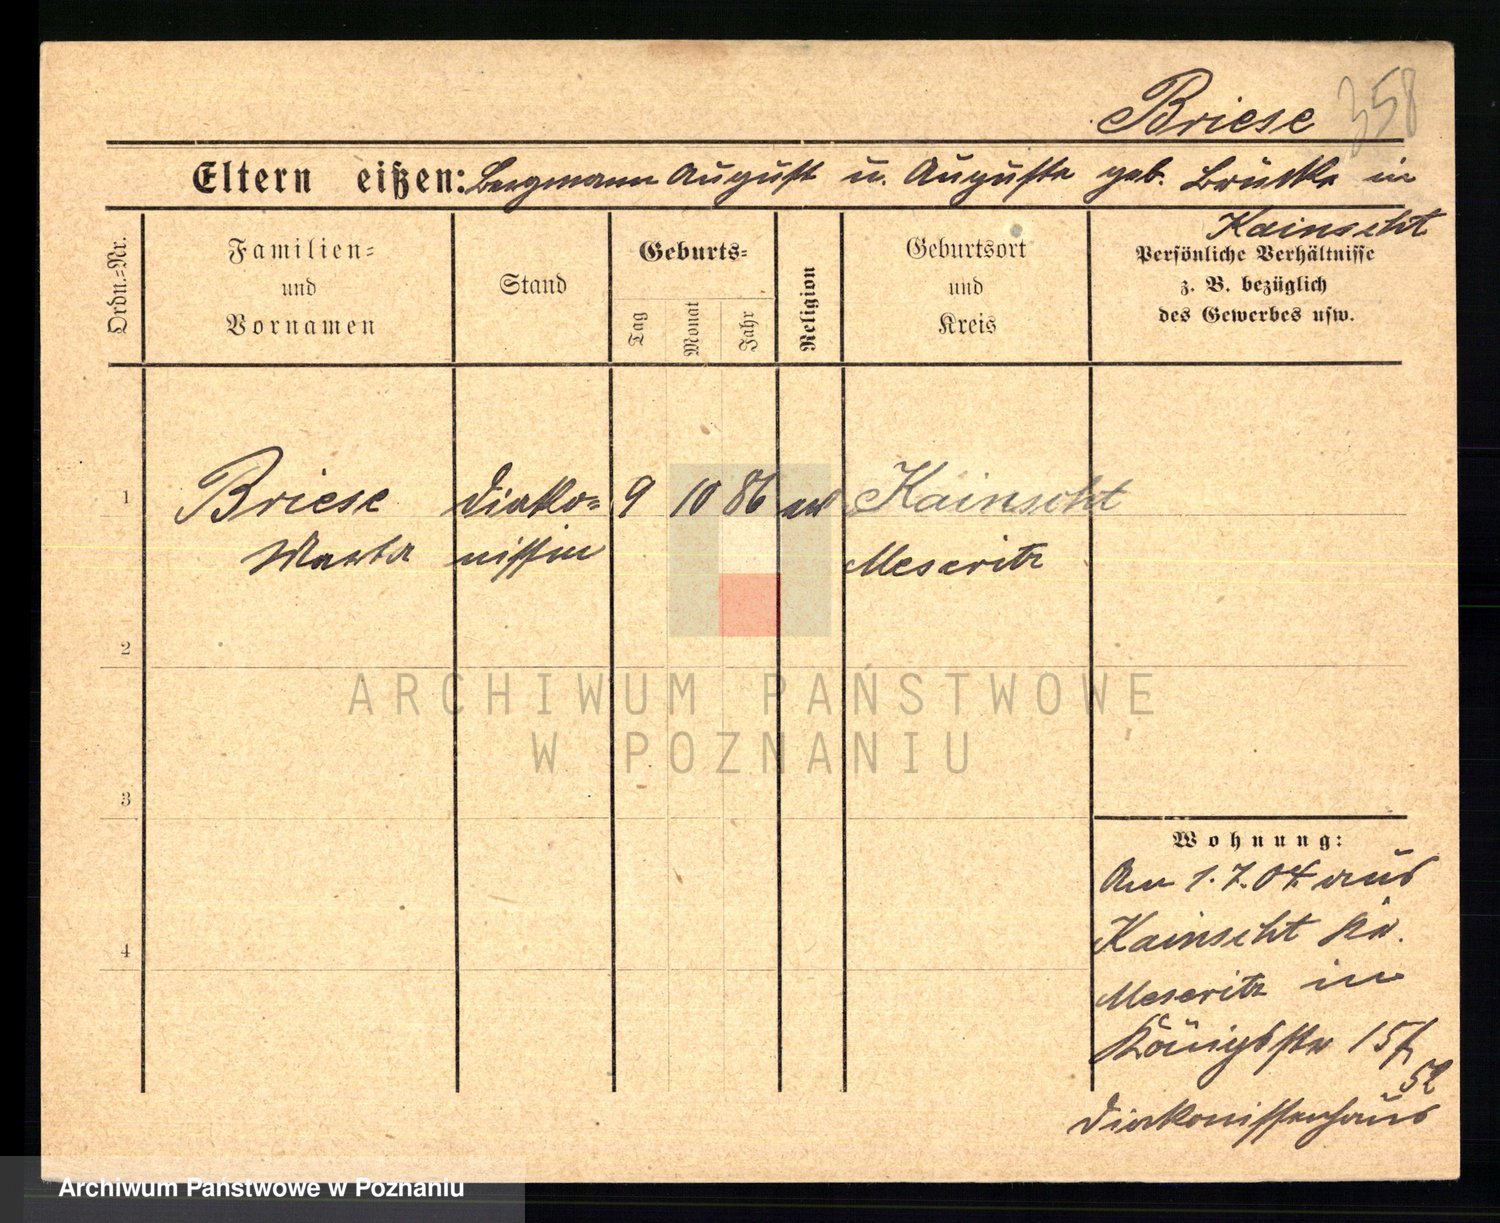 Briese 358
Eltern eißen: Bergmann August u. Auguste geb. Brücke in
Kainscht
Ordn.=Nr.
Familien=
und
Vornamen
Stand
Geburts=
Tag
Monat
Jahr
Religion
Geburtsort
und
Kreis
Persönliche Verhältnisse
z. B. bezüglich
des Gewerbes usw.
1 Briese Diako= 9 10 86 ev Kainscht
Marta nissin Meseritz
2
3
4
Wohnung:
Am 1.7.04 aus
Kainscht Kr.
Meseritz in
Königstr 15/
Diakonissenhaus
ARCHIWUM PAŃSTWOWE
W POZNANIU
Archiwum Państwowe w Poznaniu